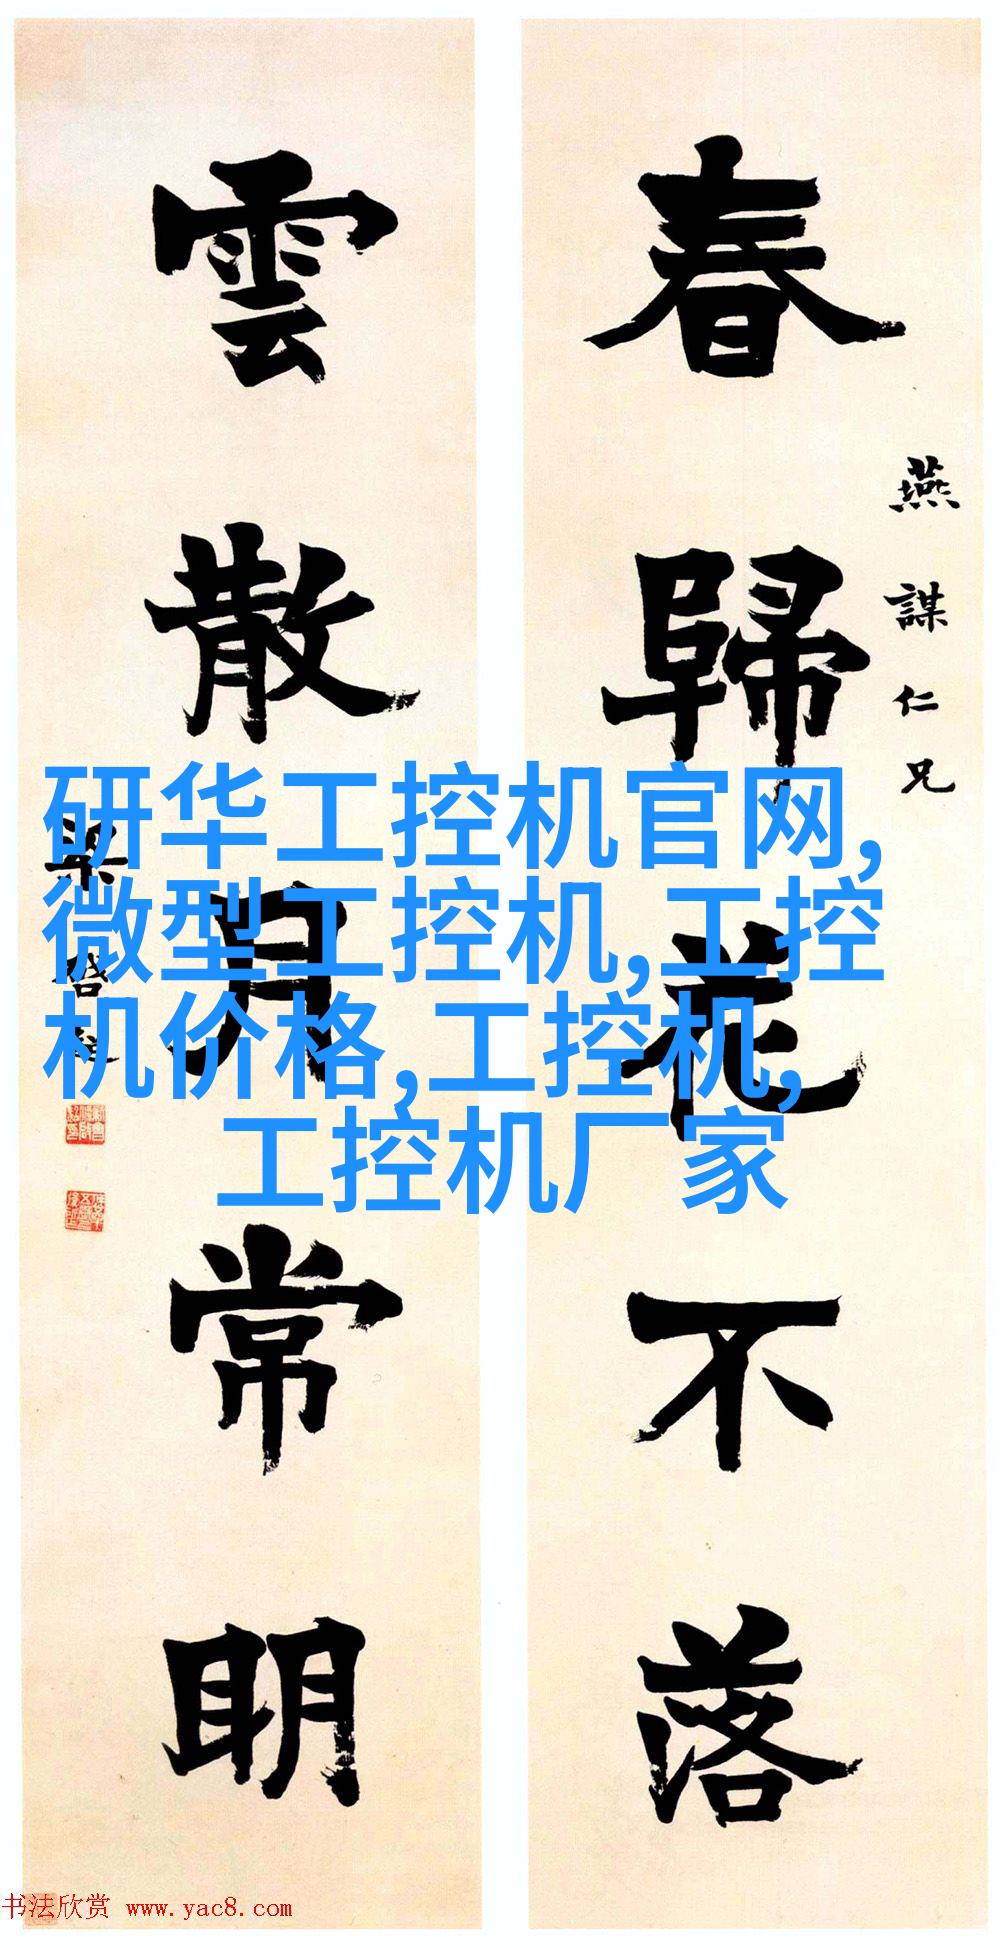 春歸花不落
燕謀仁兄
雲散月常明
梁啓超
研华工控机官网,
微型工控机,工控
机价格,工控机,
工控机厂家
书法欣赏 www.yac8.com